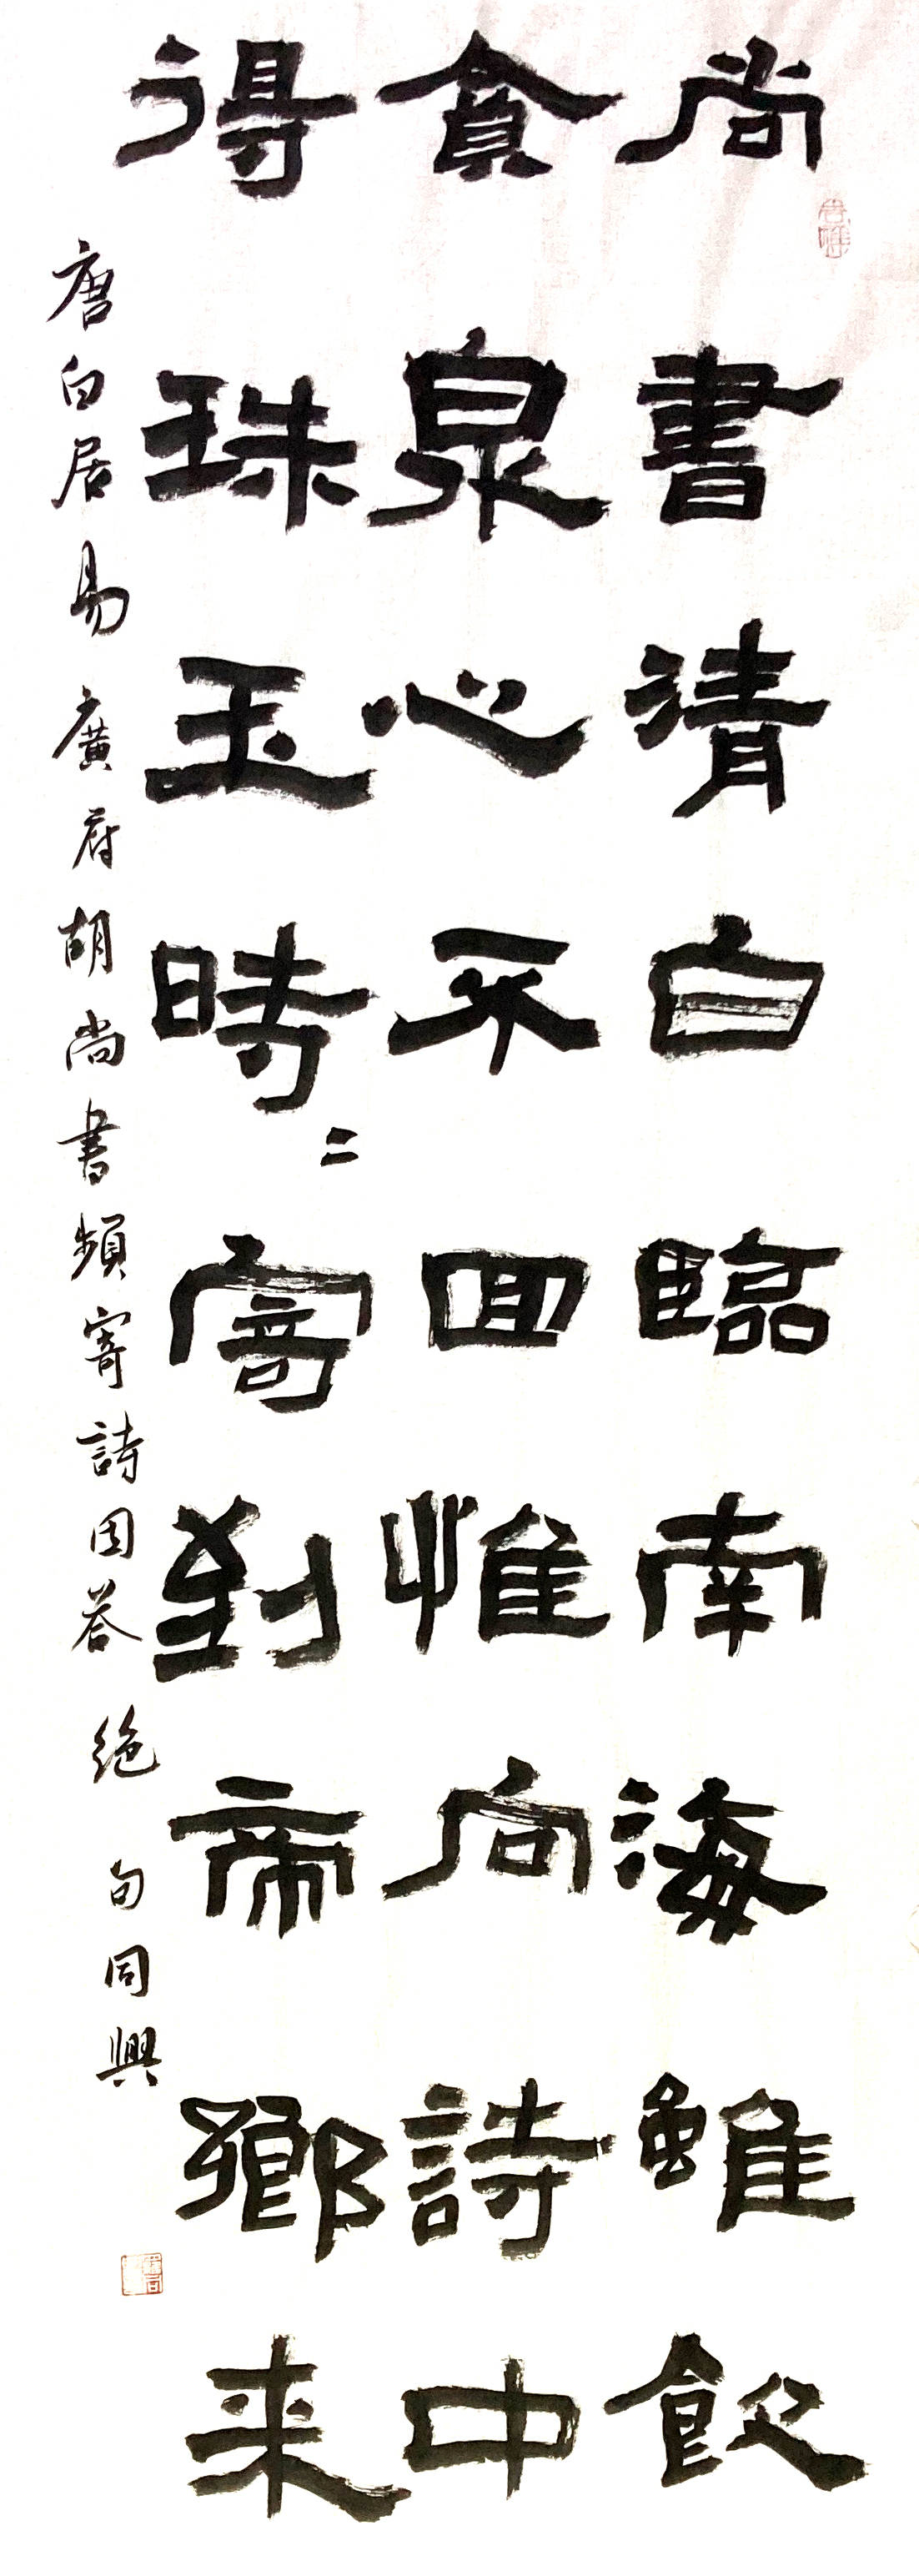 尚書清白臨南海雖飲
貪泉心不回惟向詩中
得珠玉時二寄到帝鄉来
唐白居易廣府胡尚書頻寄詩因答絶句同興